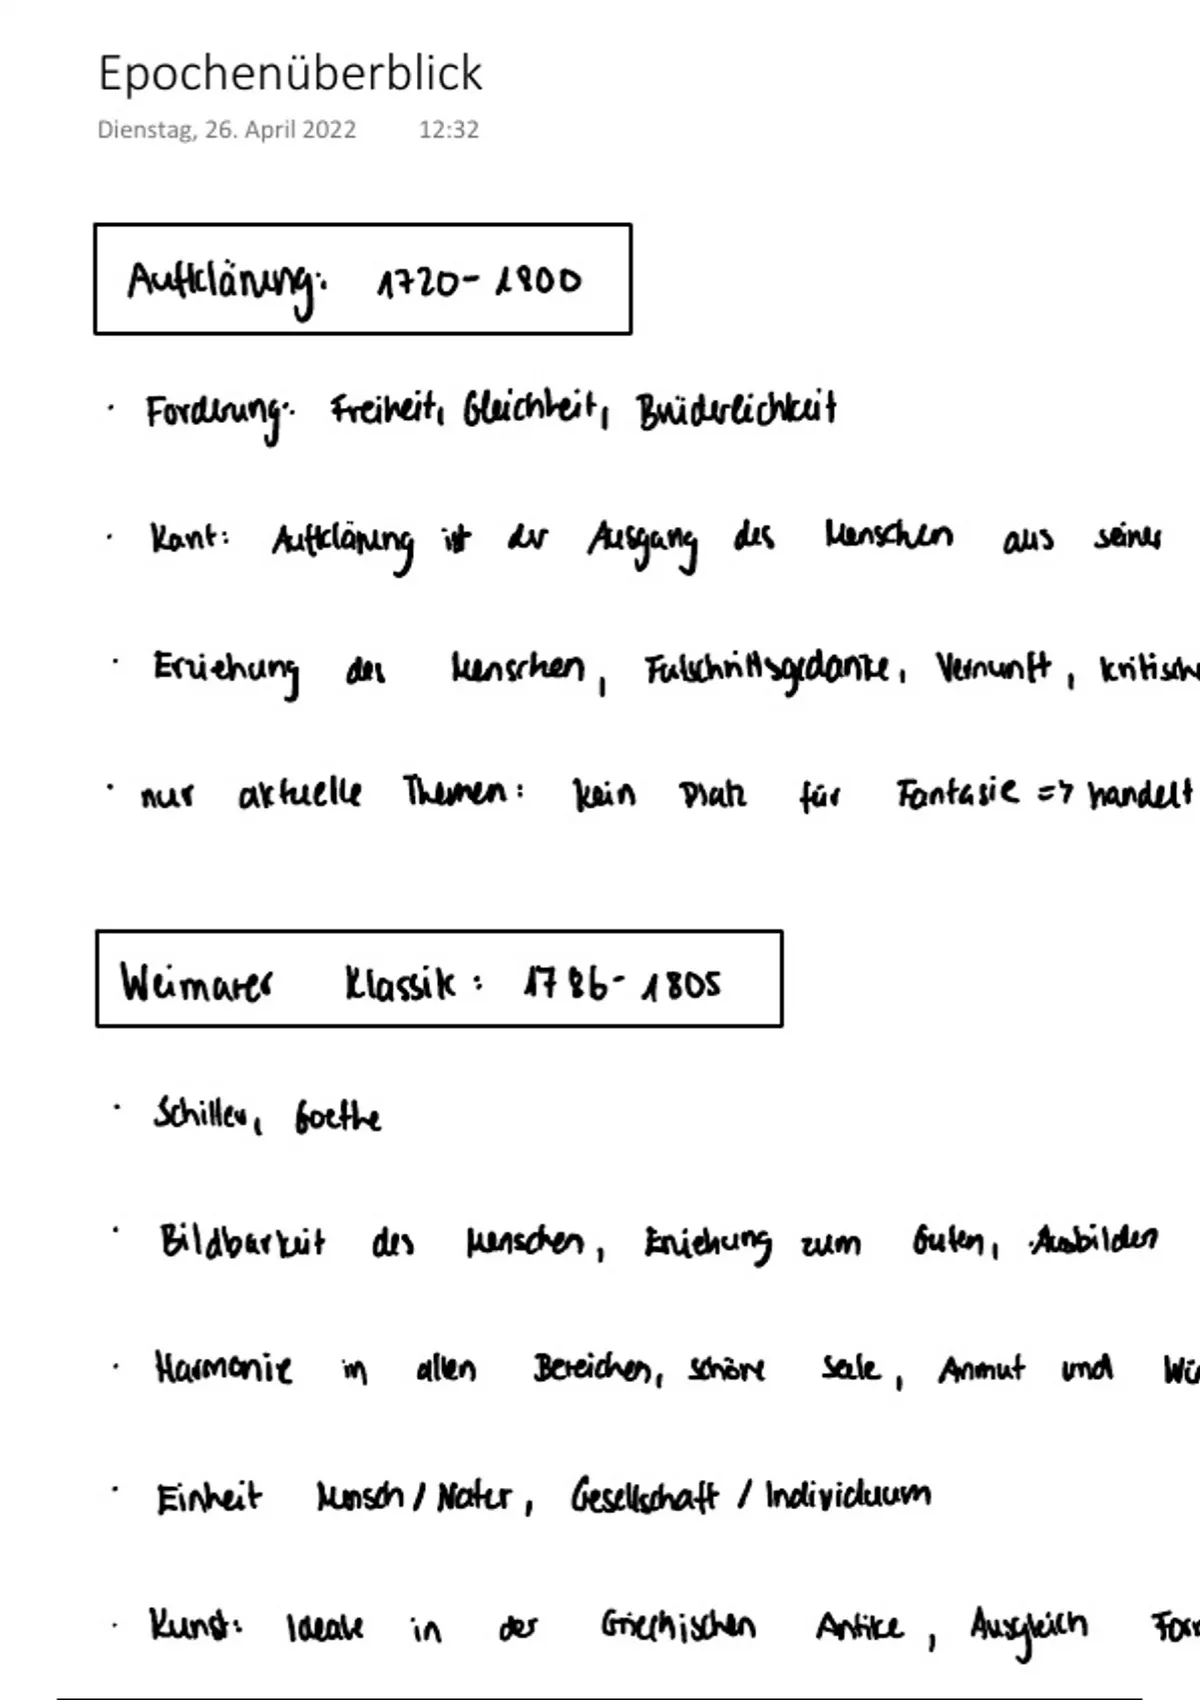 Epochenüberblick
Dienstag, 26. April 2022 12:32
Aufklärung: 1720-1800
· Forderung: Freiheit, Gleichheit, Brüderlichkeit
· Kant: Aufklärung ist der Ausgang des Menschen aus seiner
· Erziehung des Menschen, Fortschrittsgedanke, Vernunft, kritische
· nur aktuelle Themen: kein Platz für Fantasie => handelt
Weimarer Klassik: 1786-1805
· Schiller, Goethe
· Bildbarkeit des Menschen, Erziehung zum Guten, Ausbilden
· Harmonie in allen Bereichen, schöne Seele, Anmut und
· Einheit Mensch / Natur, Gesellschaft / Individuum
· Kunst: Ideale in der Griechischen Antike, Ausgleich